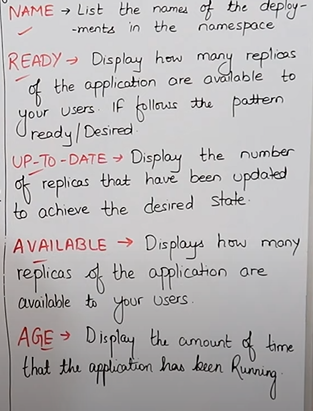 NAME → List the names of the deploy-
-ments in the namespace
READY → Display how many replicas
of the application are available to
your users. IF follows the pattern
ready/Desired.
UP-TO-DATE → Display the number
of replicas that have been updated
to achieve the desired state.
AVAILABLE → Displays how many
replicas of the application are
available to your users.
AGE → Display the amount of time
that the application has been Running.